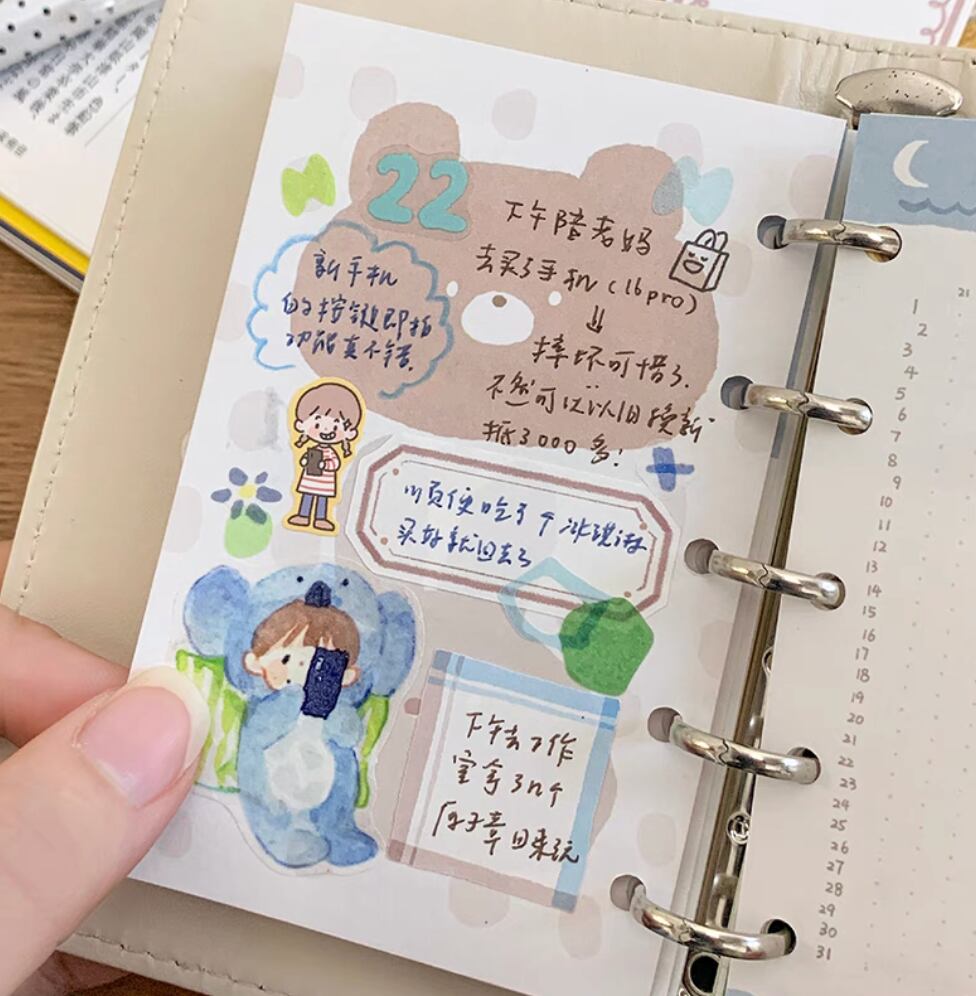 22
下午陪老妈
去买了手机(16pro)
⇓
摔坏可惜了.
不然可以以旧换新
抵3000多!
新手机
的按键即拍
功能真不错.
顺便吃了个冰淇淋
买好就回去了
下午去工作
室拿了几个
印章回来玩
21
1
2
3
4
5
6
7
8
9
10
11
12
13
14
15
16
17
18
19
20
21
22
23
24
25
26
27
28
29
30
31